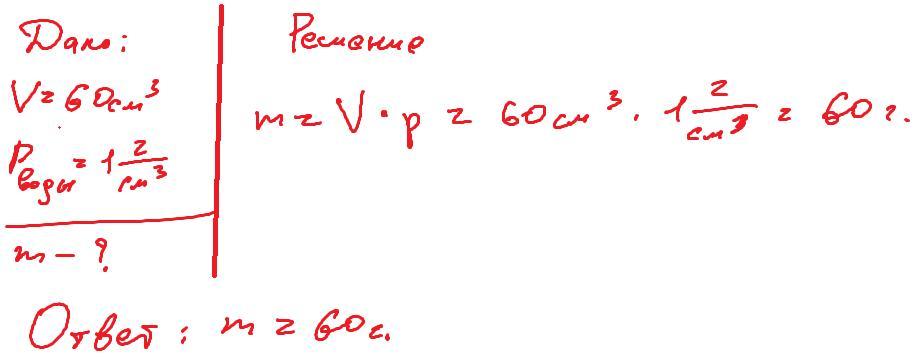 Дано:
V = 60 см³
ρ воды = 1 г/см³
m - ?
Решение
m = V · ρ = 60 см³ · 1 г/см³ = 60 г.
Ответ: m = 60 г.